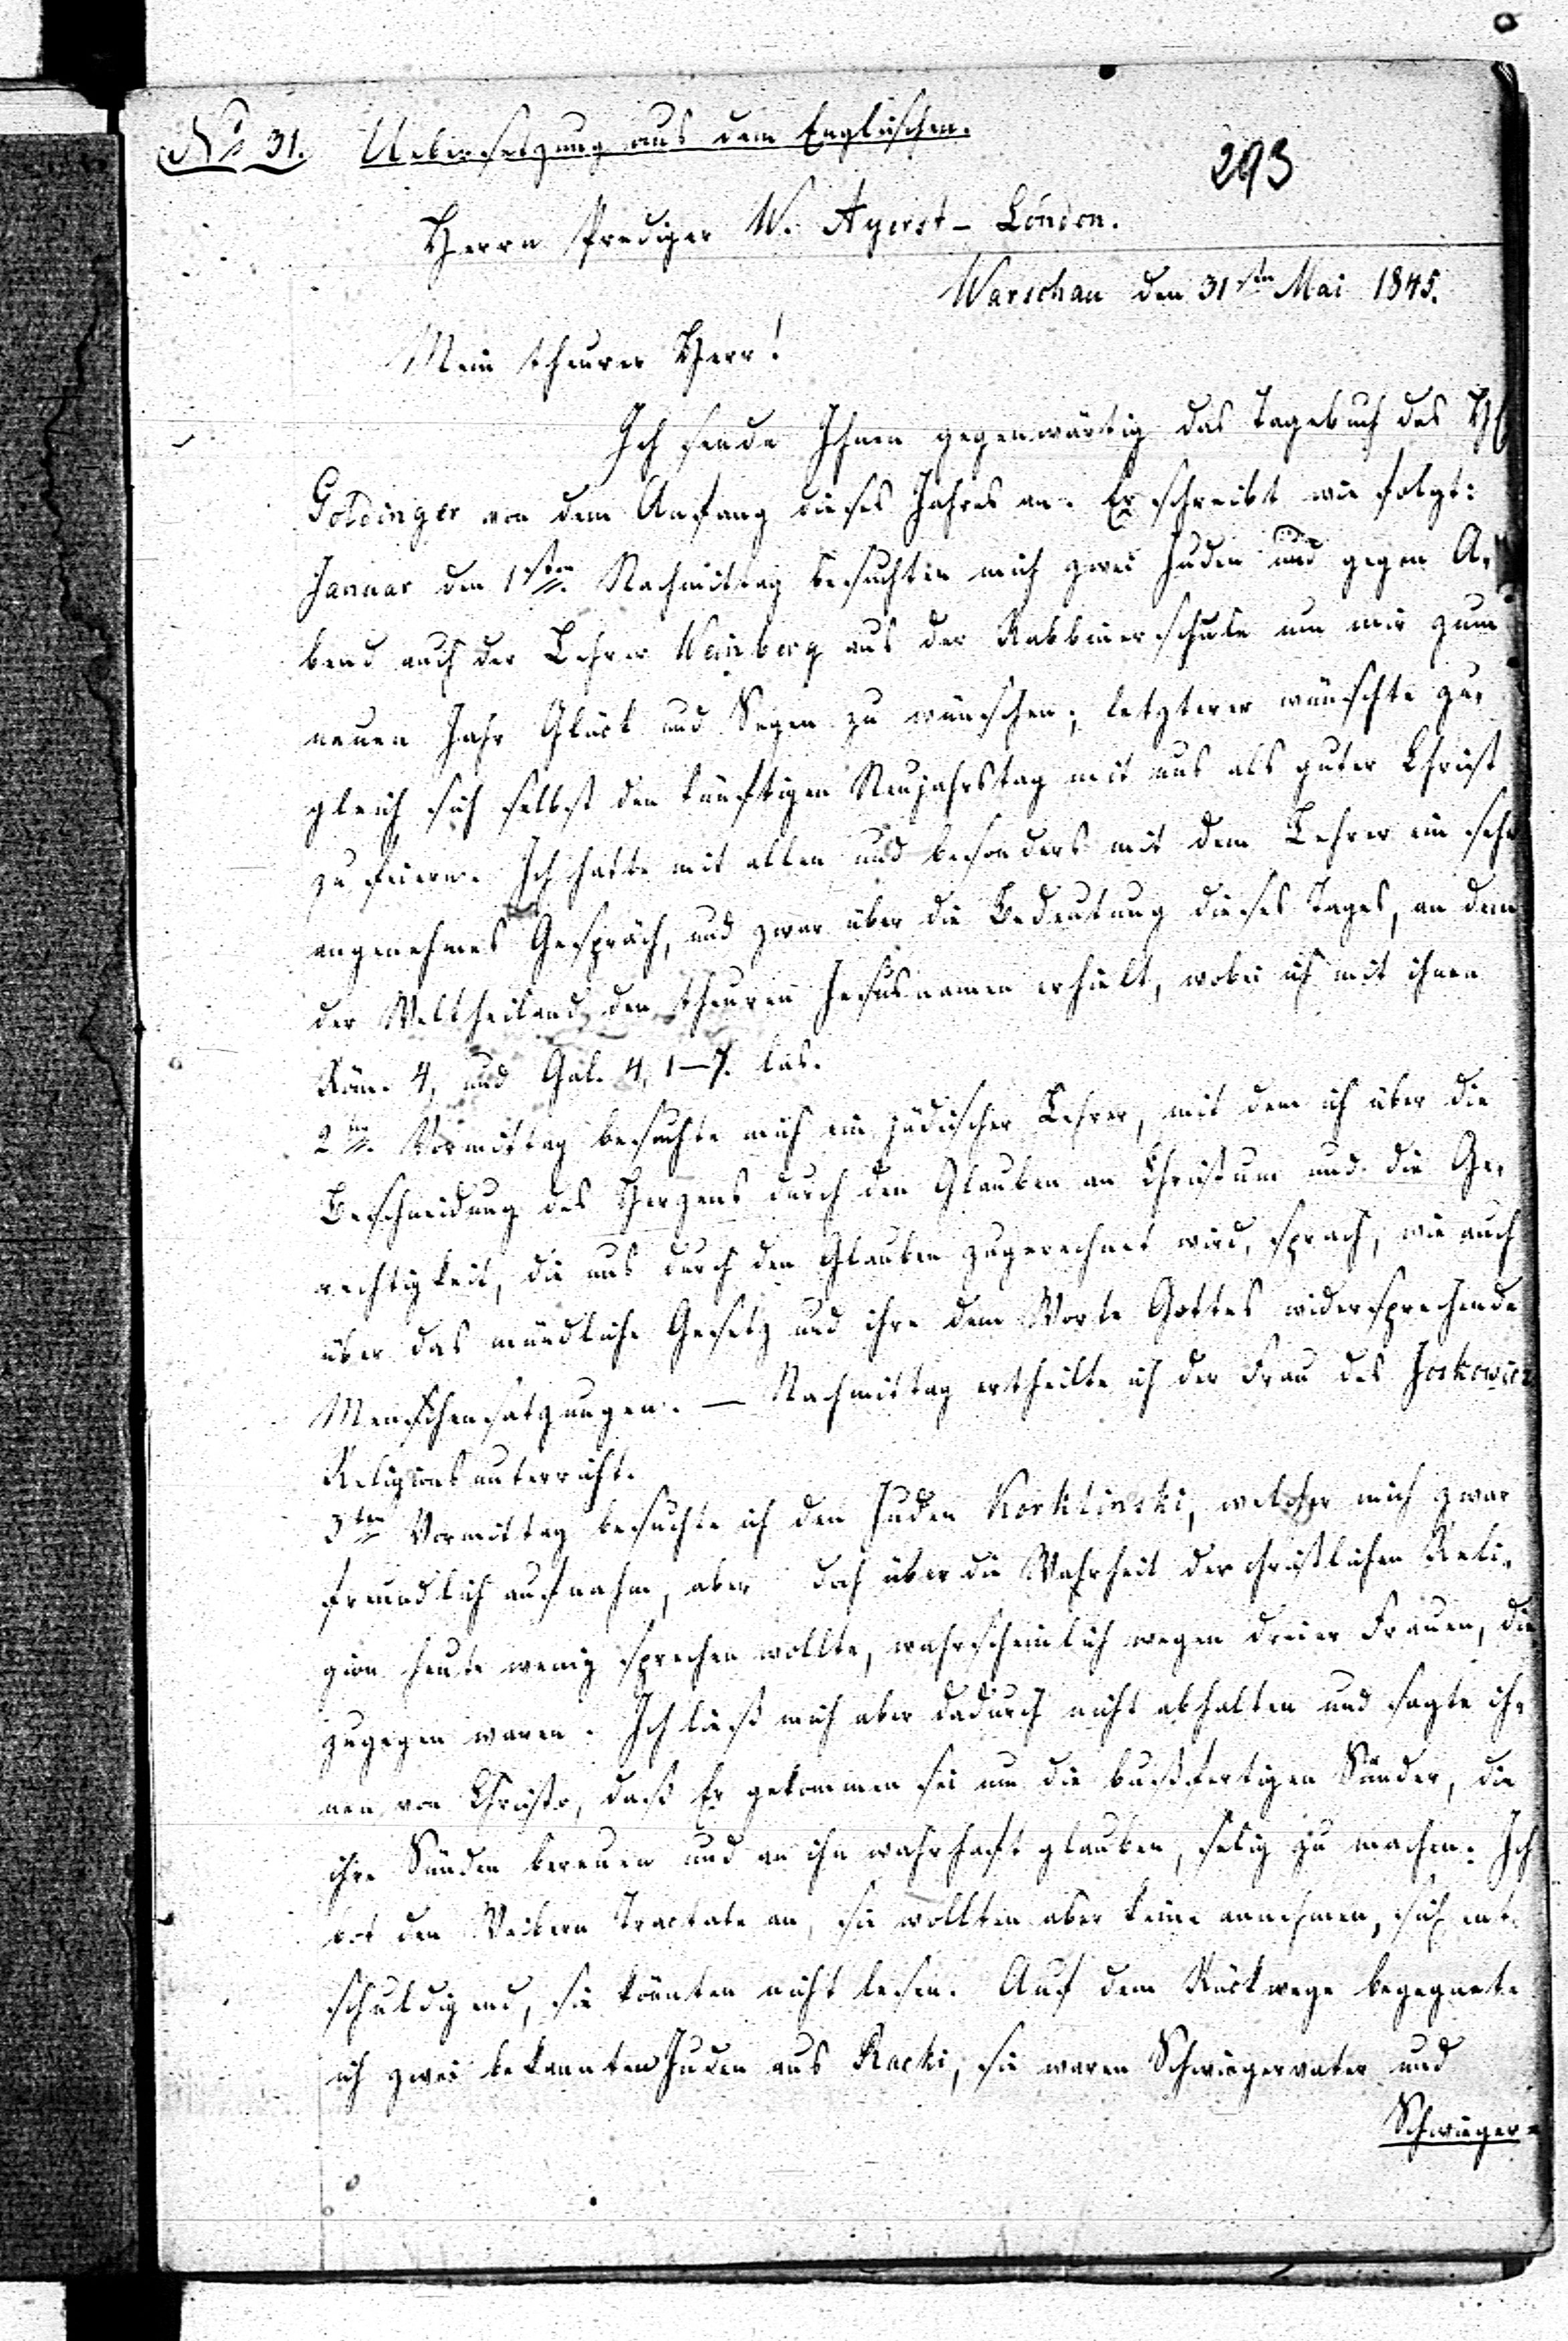 No 31. Uebersetzung aus dem Englischen.
293
Herrn Prediger W. Ayerst - London.
Warschau den 31sten Mai 1845.
Mein theurer Herr!
Ich sende Ihnen gegenwärtig das Tagebuch des H
Goldinger von dem Anfang dieses Jahres an. Er schreibt wie folgt:
Januar den 1sten. Nachmittag besuchten mich zwei Juden und gegen A-
bend auch der Lehrer Weinberg aus der Rabbinerschule um mir zum
neuen Jahr Glück und Segen zu wünschen; letzterer wünschte zu-
gleich sich selbst den künftigen Neujahrstag mit uns als guter Christ
zu feiern. Ich hatte mit allen und besonders mit dem Lehrer ein sehr
angenehmes Gespräch, und zwar über die Bedeutung dieses Tages, an dem
der Weltheiland den theuren Jesusnamen erhielt, wobei ich mit ihnen
Röm. 4, und Gal. 4, 1-7. las.
2ten. Vormittag besuchte mich ein jüdischer Lehrer, mit dem ich über die
Beschneidung des Herzens durch den Glauben an Christum und die Ge-
rechtigkeit, die uns durch den Glauben zugerechnet wird, sprach, wie auch
über das mündliche Gesetz und ihre dem Worte Gottes widersprechende
Menschensatzungen. — Nachmittag ertheilte ich der Frau des Joskowicz
Religionsunterricht.
3ten Vormittag besuchte ich den Juden Korklinski, welcher mich zwar
freundlich aufnahm, aber doch über die Wahrheit der christlichen Reli-
gion heute wenig sprechen wollte, wahrscheinlich wegen dreier Frauen, die
zugegen waren. Ich ließ mich aber dadurch nicht abhalten und sagte ih-
nen von Christo, daß Er gekommen sei um die bußfertigen Sünder, die
ihre Sünden bereuen und an ihn wahrhaft glauben, selig zu machen. Ich
bot den Weibern Tractate an, sie wollten aber keine annehmen, sich ent-
schuldigend, sie könnten nicht lesen. Auf dem Rückwege begegnete
ich zwei bekannten Juden aus Racki, sie waren Schwiegervater und
Schwieger-